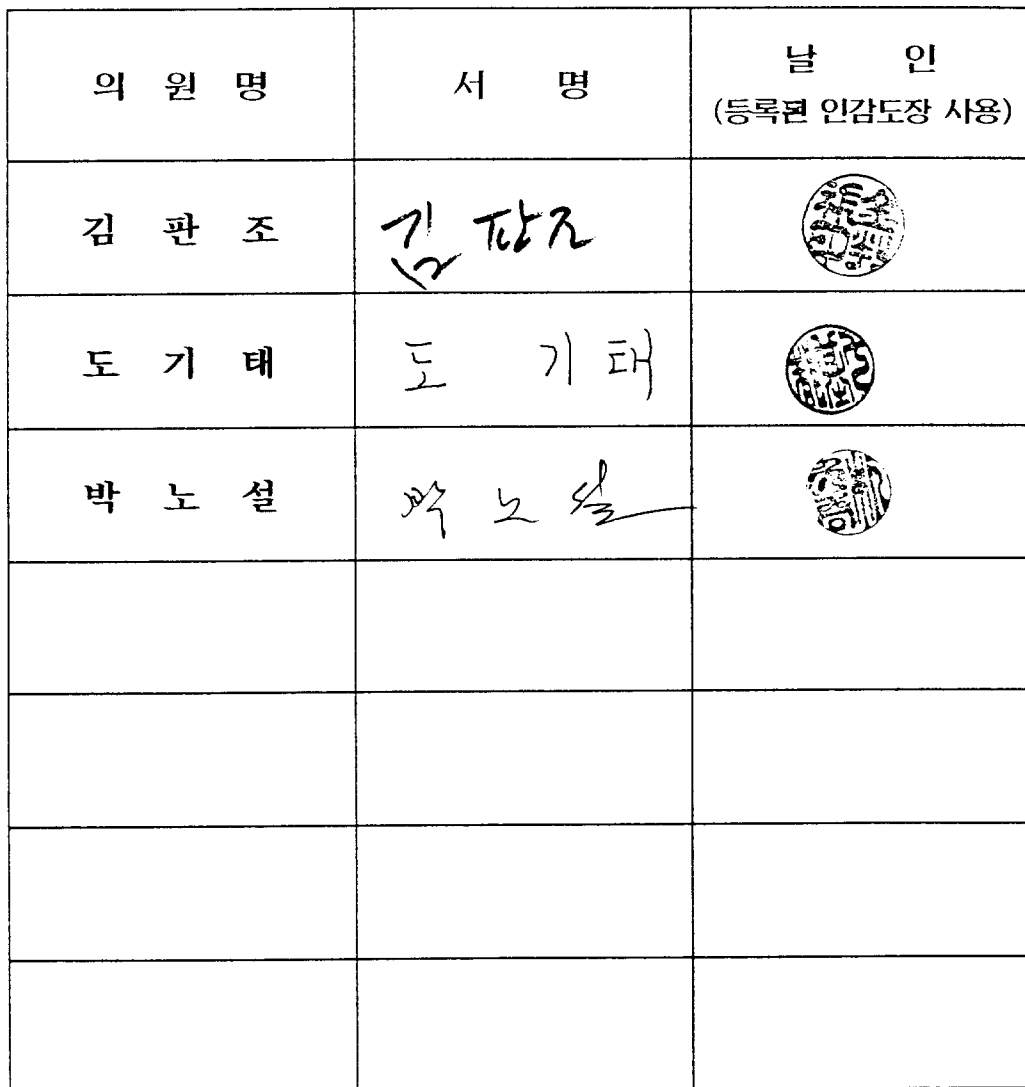 의 원 명 서 명 날 인
(등록된 인감도장 사용)
김 판 조 김 판조
도 기 태 도 기 태
박 노 설 박 노 설